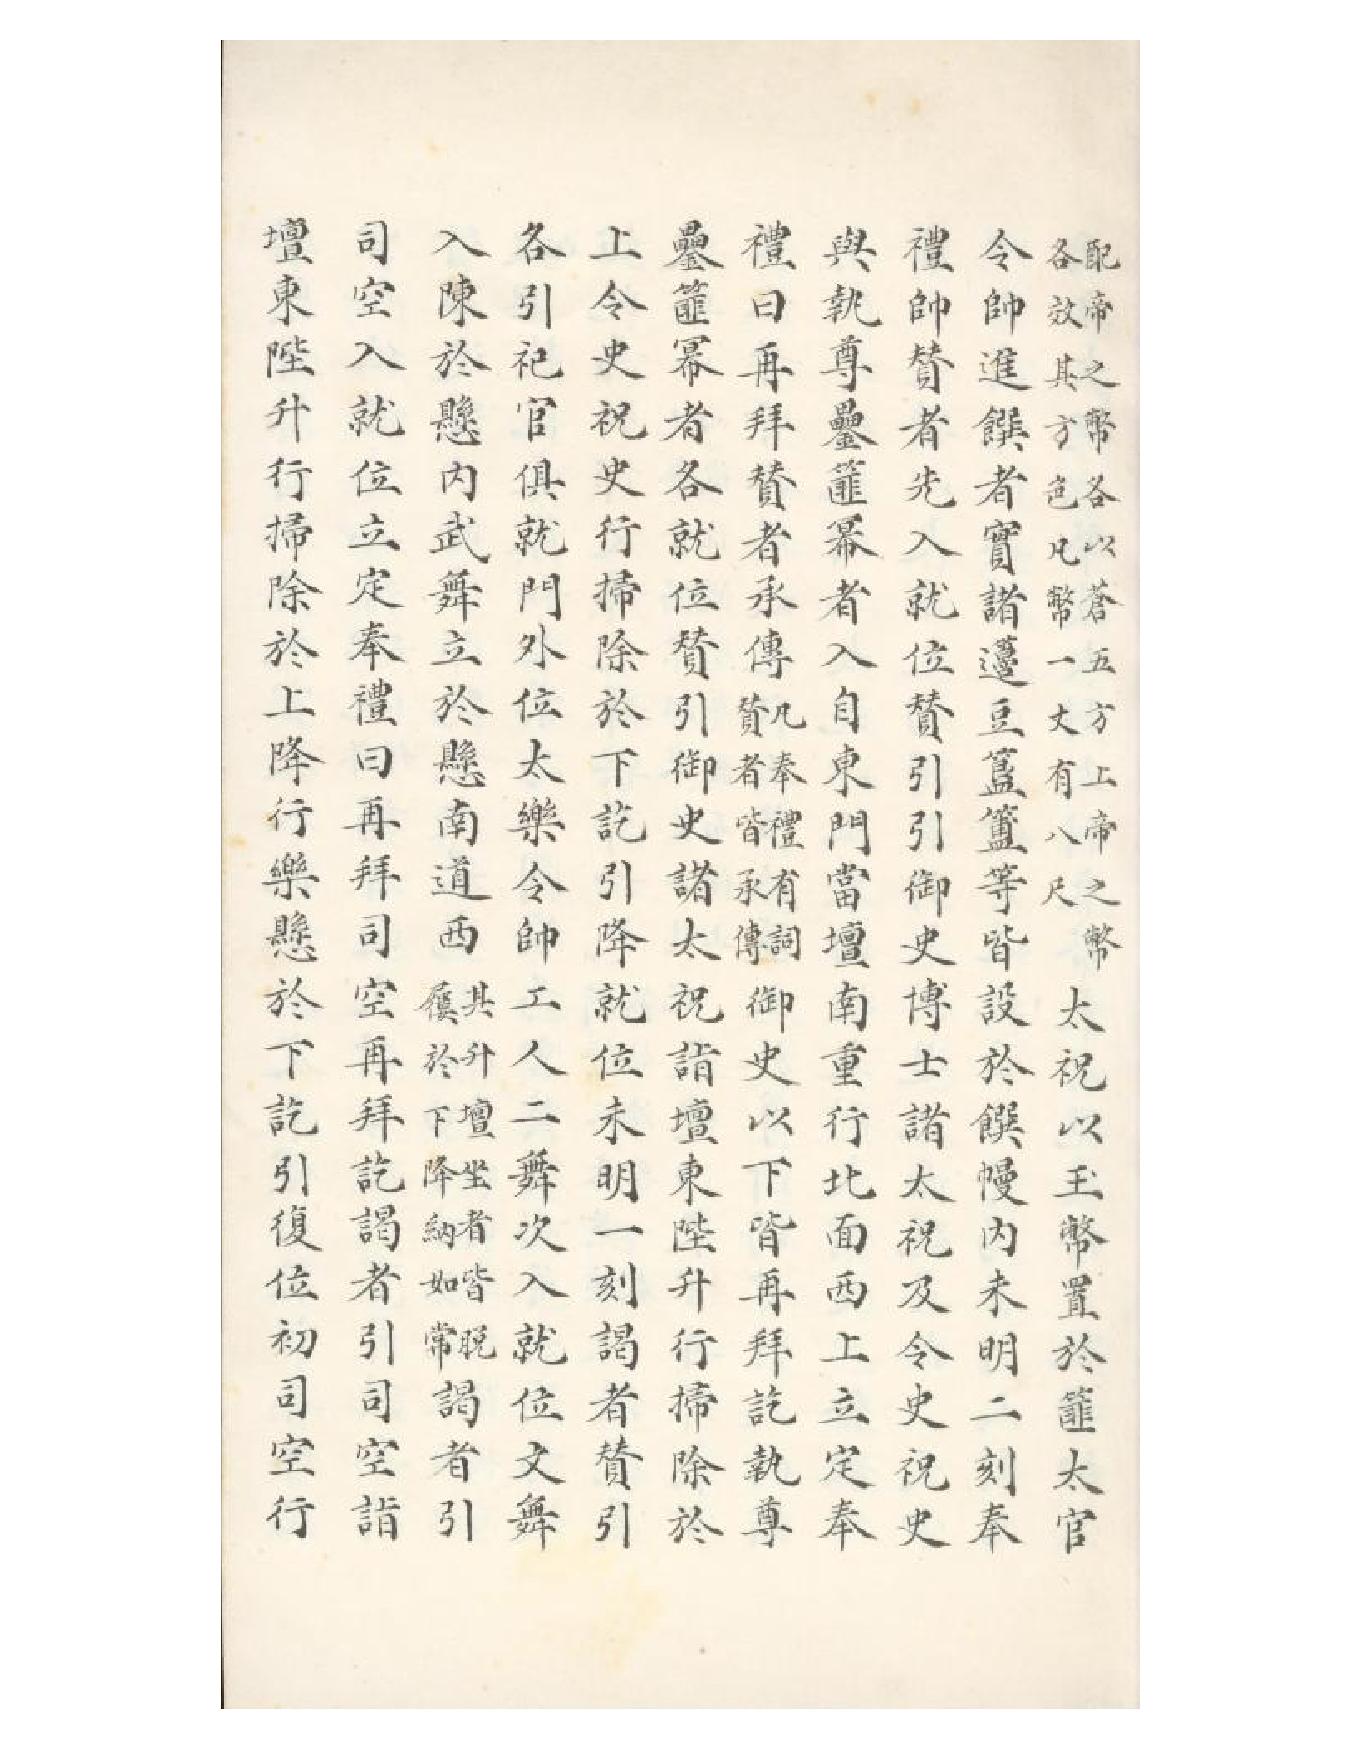 配帝之幣各以蒼五方上帝之幣
各效其方色凡幣一丈有八尺
太祝以玉幣置於篚太官
令帥進饌者實諸籩豆簋簠等皆設於饌幔內未明二刻奉
禮帥贊者先入就位贊引引御史博士諸太祝及令史祝史
與執尊罍篚冪者入自東門當壇南重行北面西上立定奉
禮曰再拜贊者承傳
凡奉禮有詞
贊者皆承傳
御史以下皆再拜訖執尊
罍篚冪者各就位贊引御史諸太祝詣壇東陛升行掃除於
上令史祝史行掃除於下訖引降就位未明一刻謁者贊引
各引祀官俱就門外位太樂令帥工人二舞次入就位文舞
入陳於懸內武舞立於懸南道西
其升壇坐者皆脫
屨於下降納如常
謁者引
司空入就位立定奉禮曰再拜司空再拜訖謁者引司空詣
壇東陛升行掃除於上降行樂懸於下訖引復位初司空行